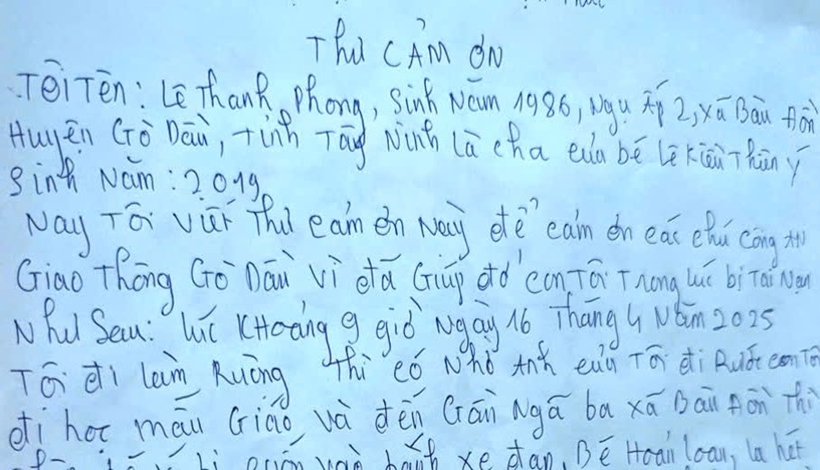 Thư CẢM ƠN
Tôi Tên: Lê Thanh Phong, Sinh Năm 1986, Ngụ Ấp 2, xã Bàu Đồn
Huyện Gò Dầu, tỉnh Tây Ninh Là cha của bé Lê Kiều Thiên Ý
Sinh Năm: 2019
Nay Tôi viết Thư cảm ơn Này để cảm ơn các chú Công AN
Giao Thông Gò Dầu vì đã Giúp đỡ con Tôi Trong lúc bị Tai Nạn
Như Sau: lúc KHoảng 9 giờ Ngày 16 Tháng 4 Năm 2025
Tôi đi làm Ruộng thì có Nhờ Anh của Tôi đi Rước con Tôi
đi học mẫu Giáo và đến Gần Ngã ba xã Bàu Đồn thì
bị vào bánh xe đạp, Bé Hoản loạn, la hét